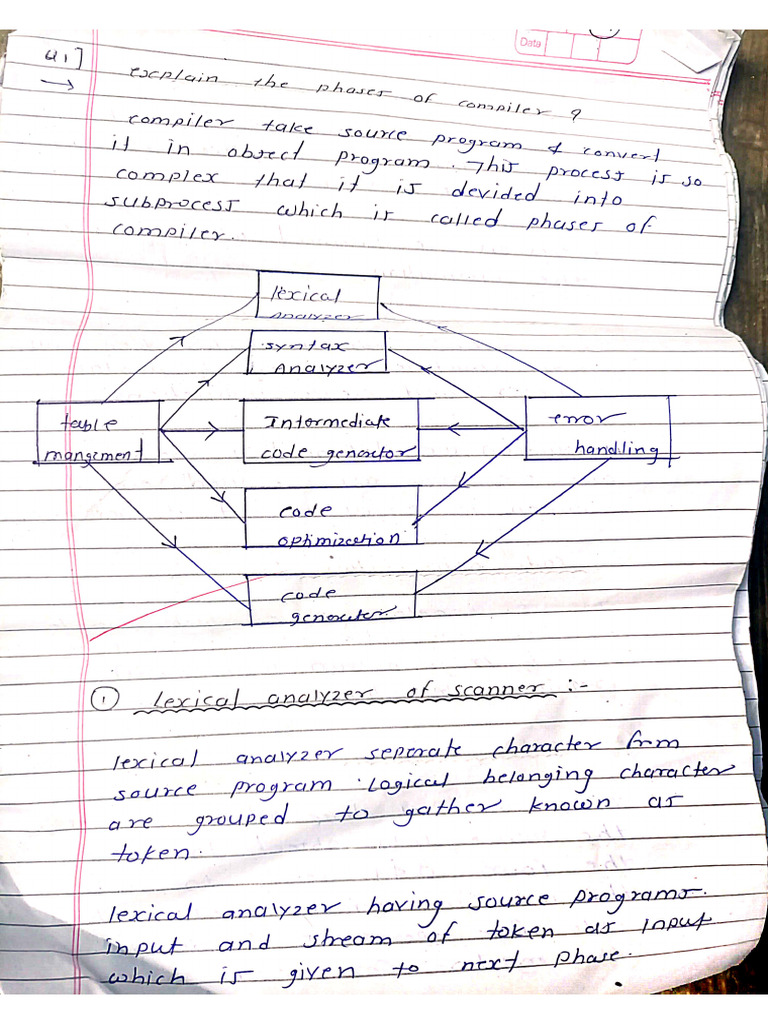 Data
Q1]
explain the phases of compiler ?
→ compiler take source program & convert
it in object program. This process is so
complex that it is devided into
subprocess which is called phases of
compiler.
lexical
analyzer
syntax
Analyzer
table
mangement
Intermediate
code generator
error
handling
code
optimization
code
generator
① lexical analyzer of scanner :-
lexical analyzer seperate character from
source program. Logical belonging character
are grouped to gather known as
token.
lexical analyzer having source programs.
input and stream of token as input
which is given to next phase.